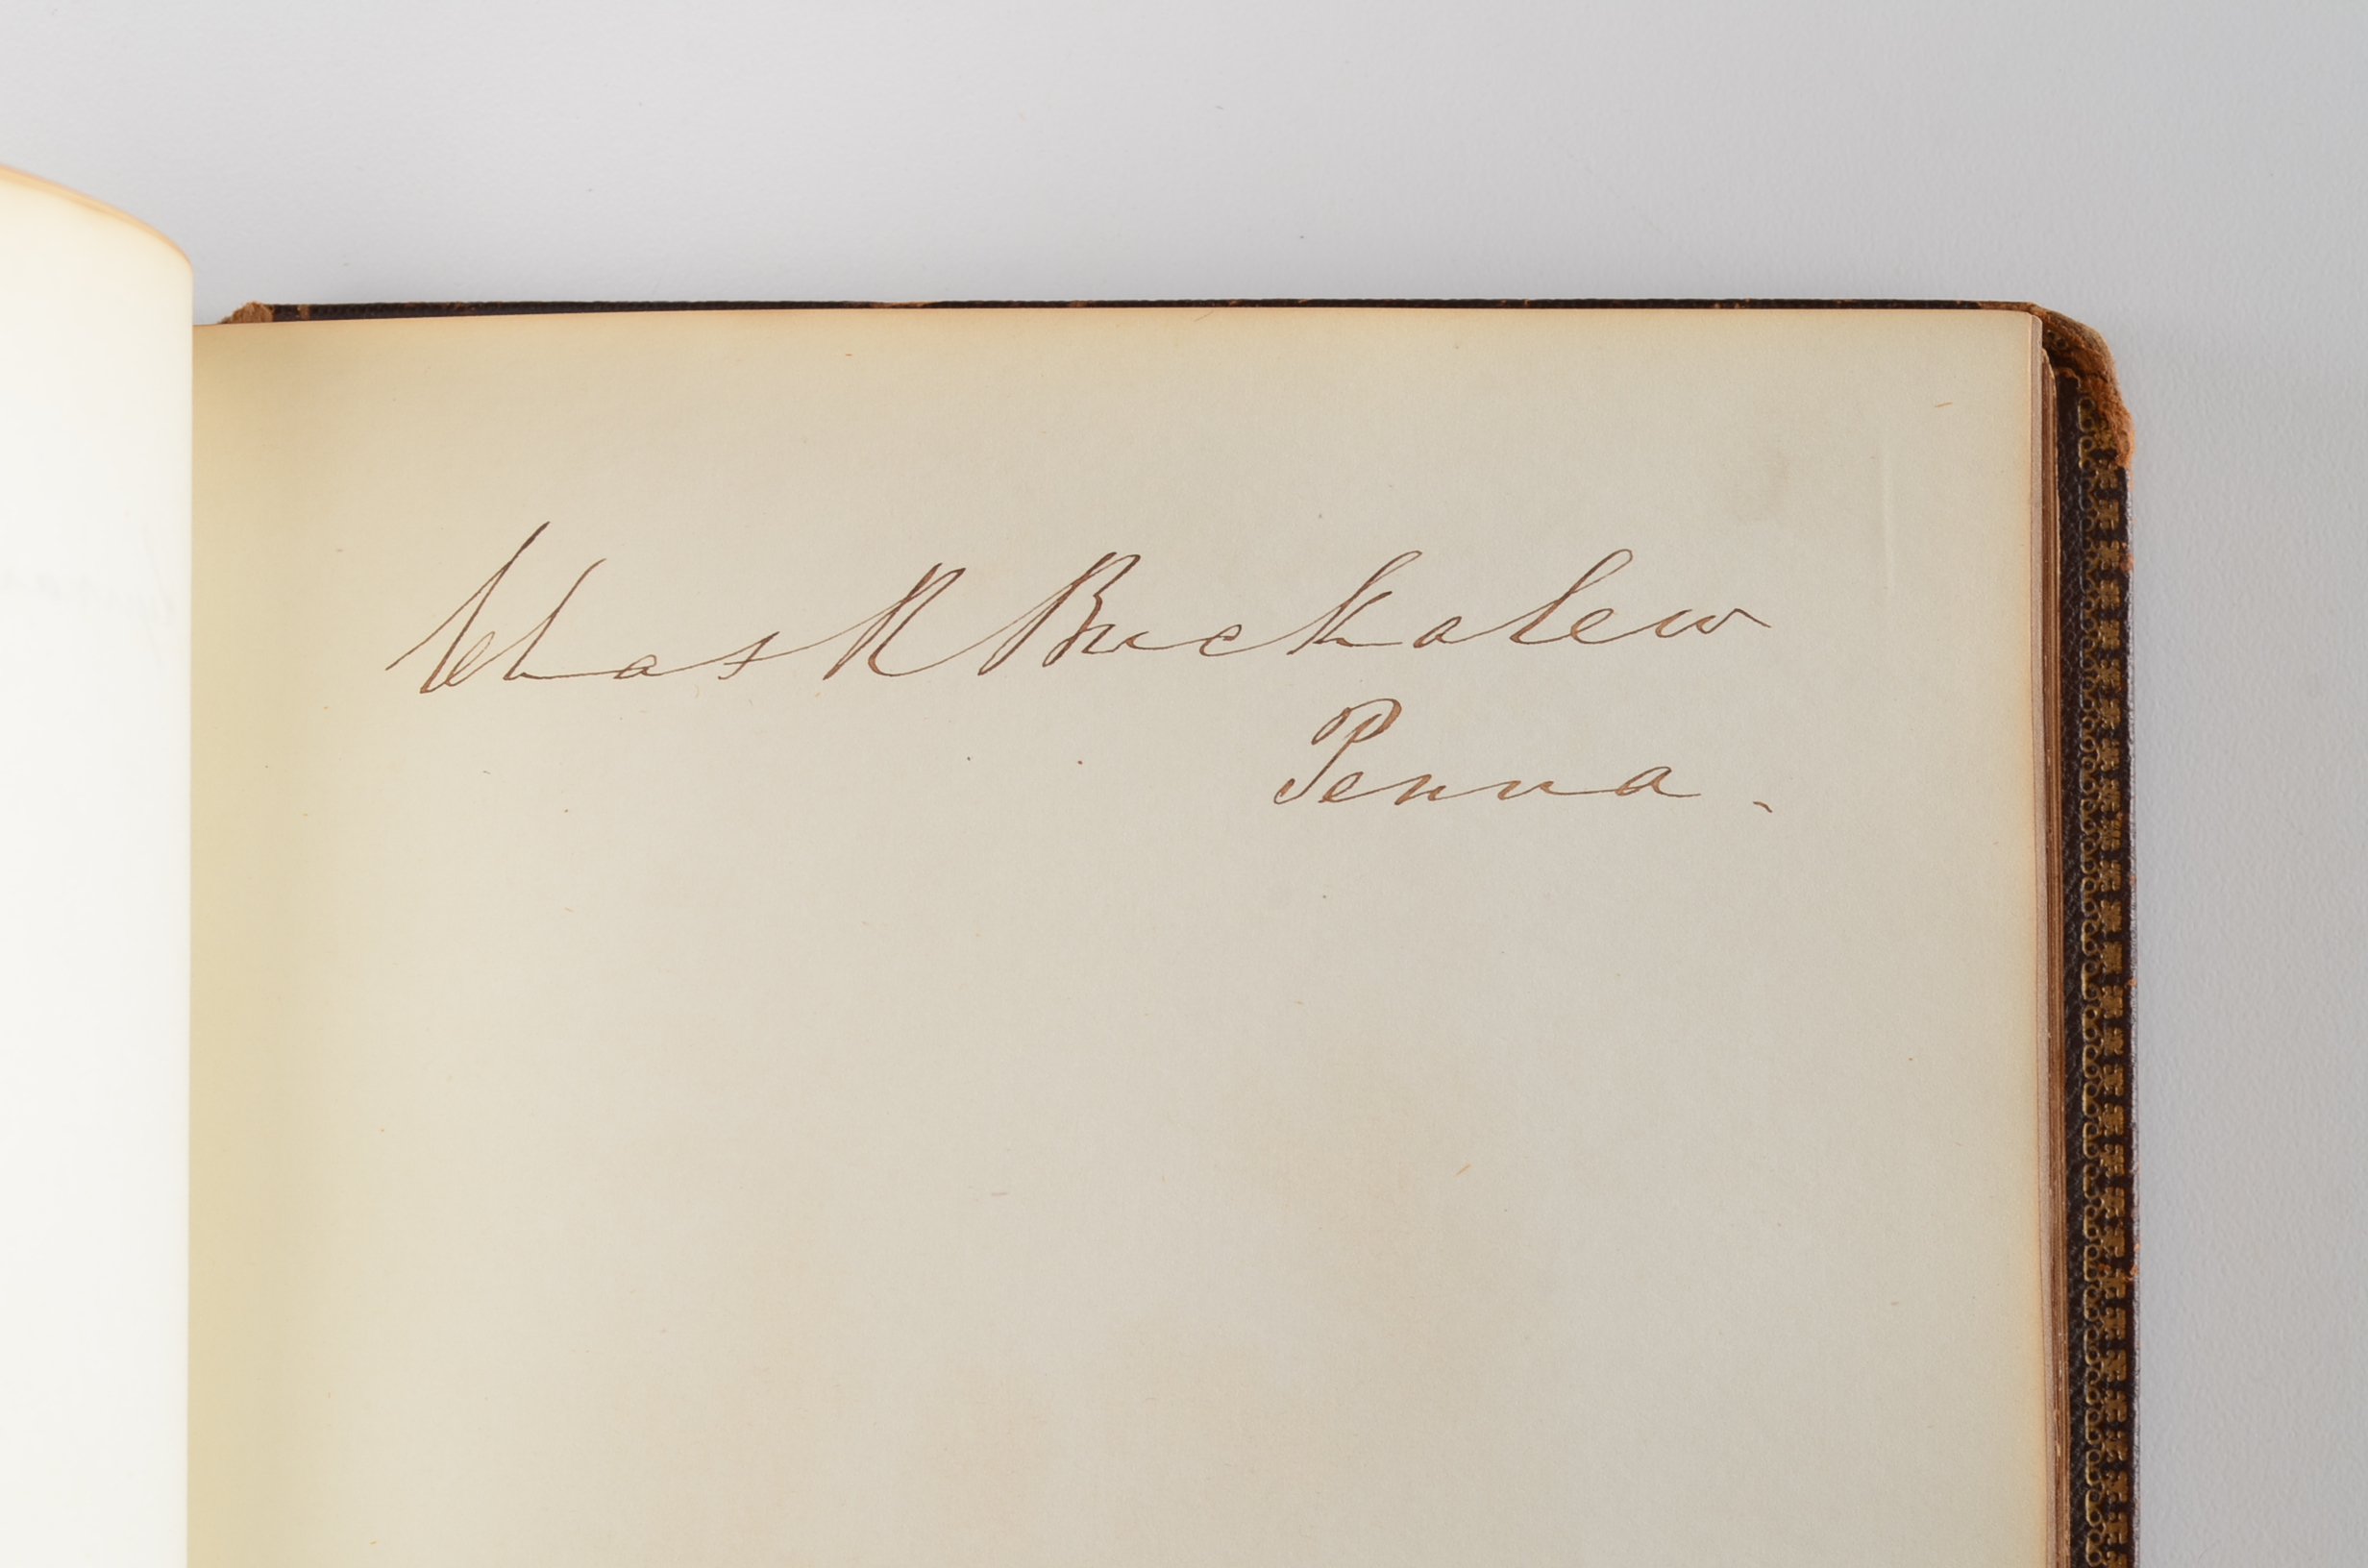 Chas R Buckalew
Penna.